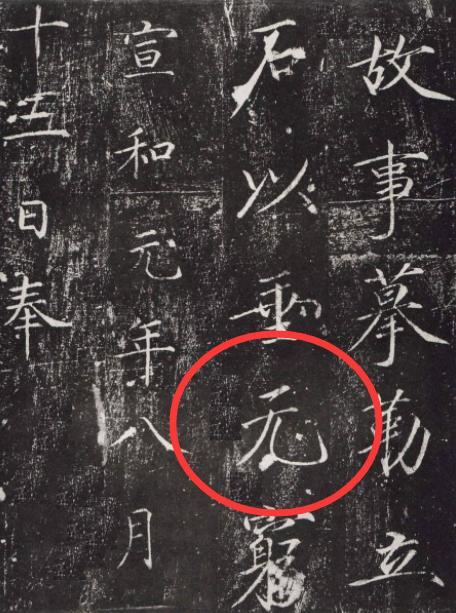 故事摹勒立
石以垂无窮
宣和元年八月
十五日奉